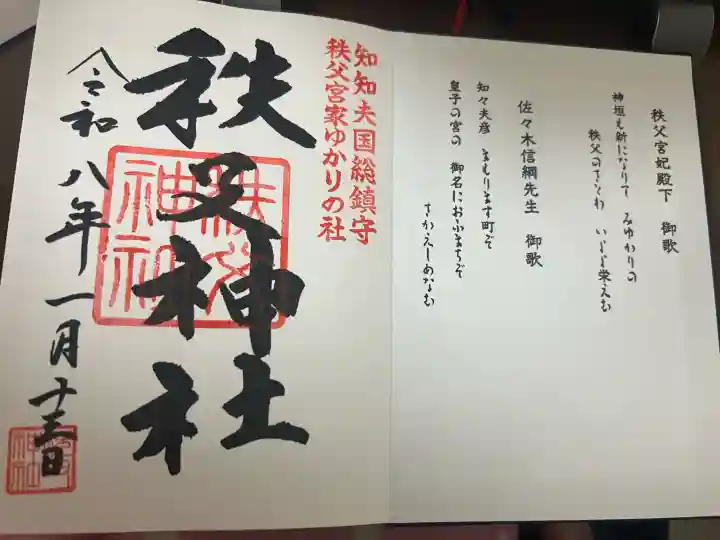 秩父宮妃殿下 御歌
神垣も新になりて みゆかりの
秩父のさとわ いよよ栄えむ
佐々木信綱先生 御歌
知々夫彦 まもります町ぞ
皇子の宮の 御名におふまちぞ
さかえしめなむ
知知夫国総鎮守
秩父宮家ゆかりの社
秩父神社
令和八年一月十三日